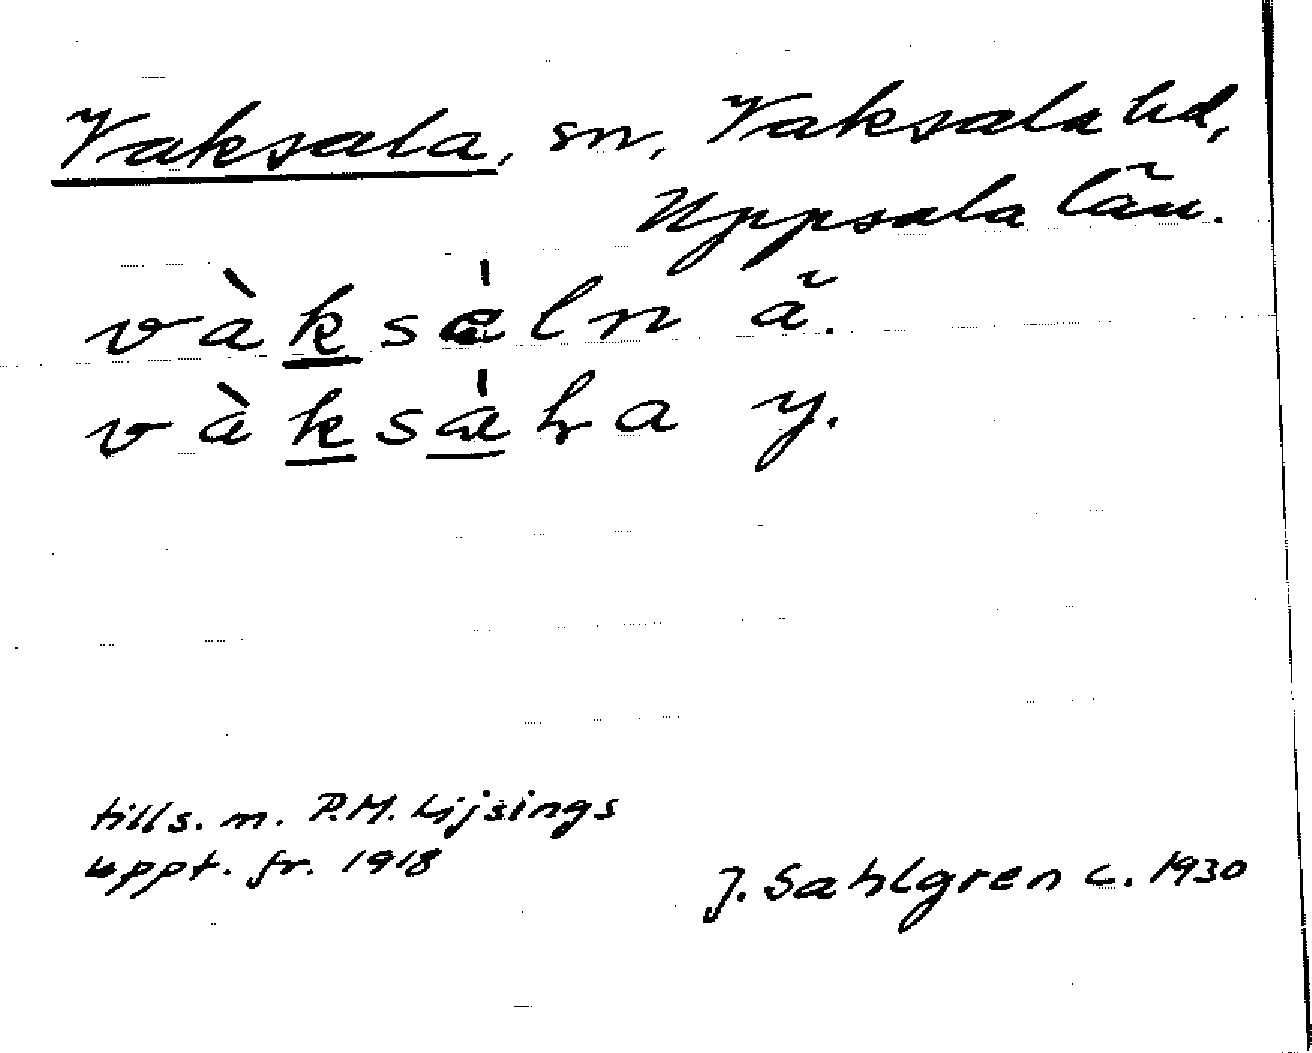 Vaksala, sn, Vaksala hd,
Uppsala län.
vàksáln ä.
vàksáḷa y.
tills. m. P.M. Lijsings
uppt. fr. 1918
J. Sahlgren c. 1930